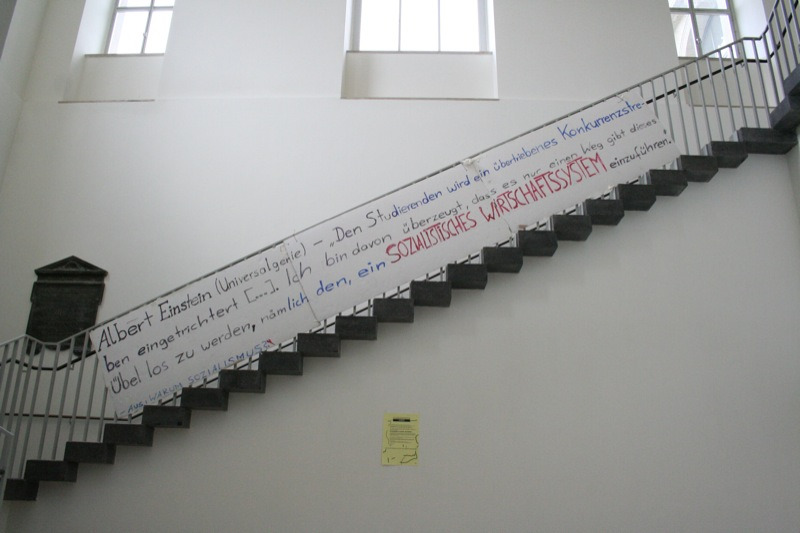 Albert Einstein (Universalgenie) – „Den Studierenden wird ein übertriebenes Konkurrenzstre-
ben eingetrichtert [....]. Ich bin davon überzeugt, dass es nur einen Weg gibt dieses
Übel los zu werden, nämlich den, ein SOZIALISTISCHES WIRTSCHAFTSSYSTEM einzuführen."
- AUS: WARUM SOZIALISMUS?